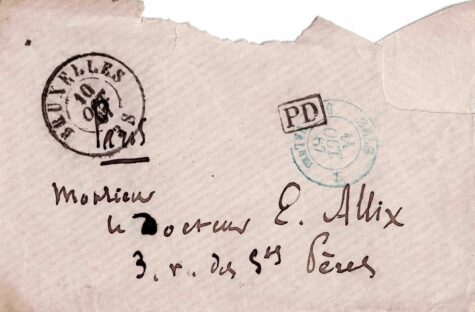 BRUXELLES
10
OCT
PD
11
OCT
67
Paris
Monsieur
le Docteur E. Allix
3. r. des Sts Pères